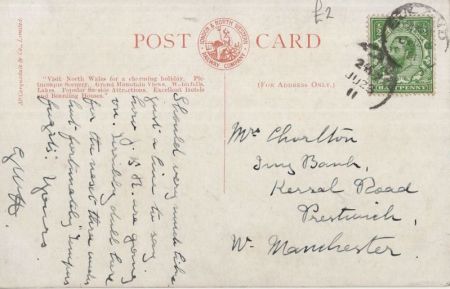 £2
POST CARD
LONDON & NORTH WESTERN
RAILWAY COMPANY
McCorquodale & Co., Limited.
"Visit North Wales for a charming holiday. Pic-
turesque Scenery, Grand Mountain Views, Waterfalls,
Lakes. Popular Sea-side Attractions. Excellent Hotels
and Boarding Houses."
(FOR ADDRESS ONLY.)
HALFPENNY
JU 22
11
Should very much like
just a line to say
how
are going
on. Shall
for the next three weeks
but fortunately
Yours
Mrs Chorlton
Ivy Bank,
Kersal Road
Prestwich,
Nr. Manchester.